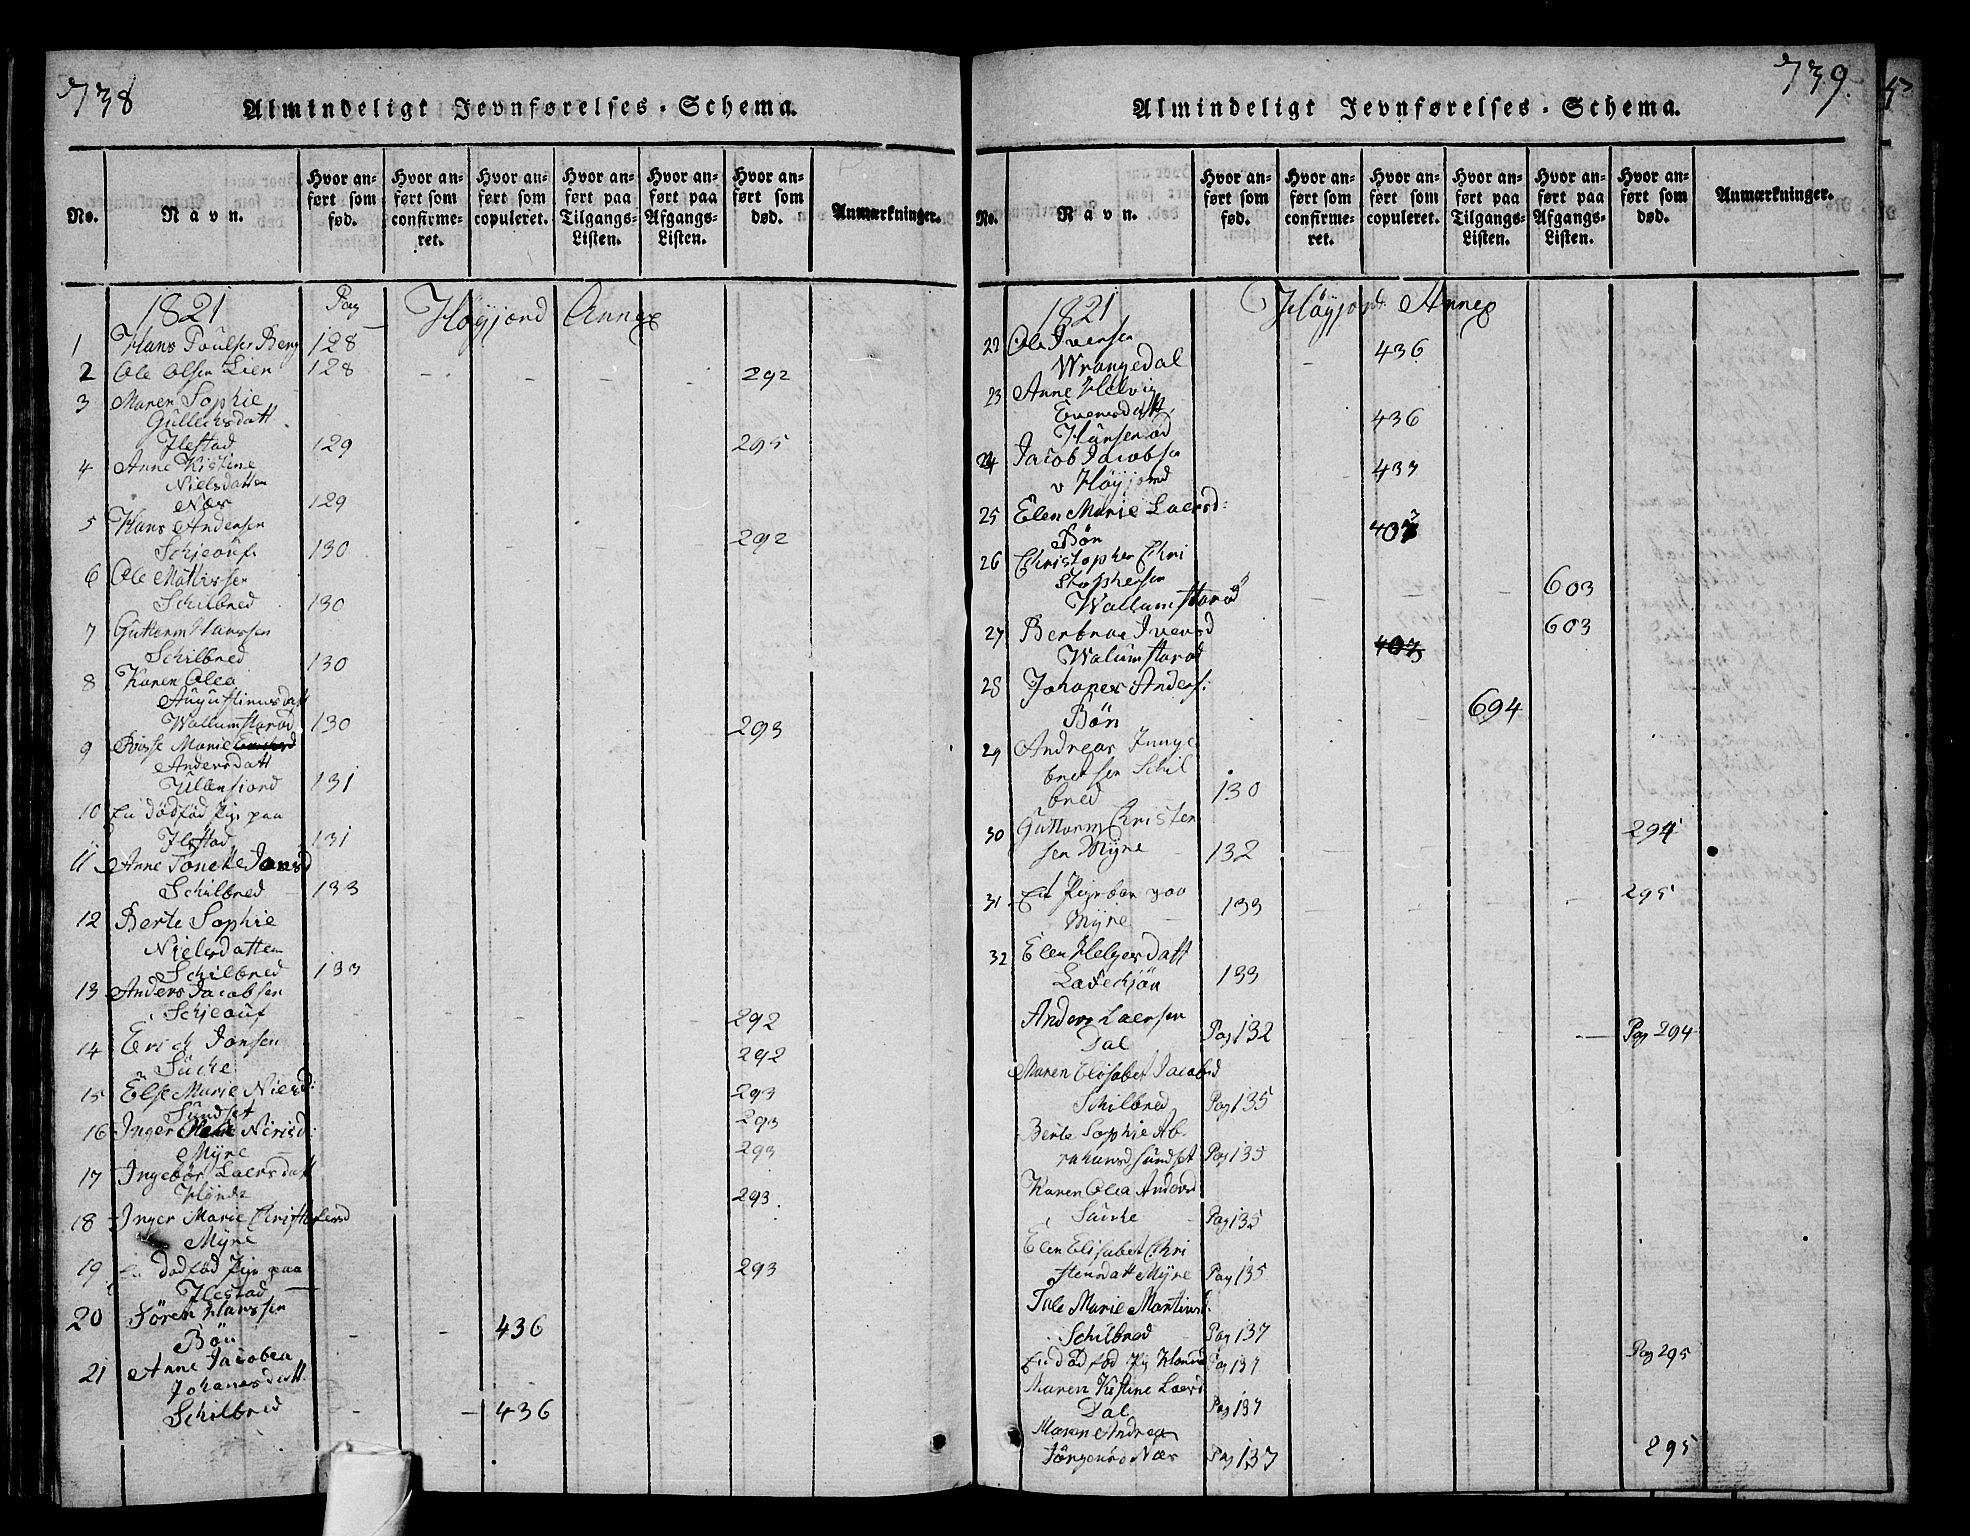 738
Almindeligt Jevnførelses-Schema.
No.
Navn.
Hvor anført som fød.
Hvor anført som confirmeret.
Hvor anført som copuleret.
Hvor anført paa Tilgangs-Listen.
Hvor anført paa Afgangs-Listen.
Hvor anført som død.
Anmærkninger.
1821 Pag Høyjord Annex
1 Hans Poulsen Berg 128
2 Ole Olsen Lien 128 292
3 Maren Sophie
Gullichsdatt
Ilestad 129 295
4 Anne Kistine
Nielsdatten
Nær 129
5 Hans Andersen
Schjeouf 130 292
6 Ole Mathissen
Schilbred 130
7 Guttorm Hanssen
Schilbred 130
8 Karen Olea
Augustinusdatt
Wallumstarød 130 293
9 Marie
Andersdatt
131
10 En dødfød Pige paa
Ilestad 131
11 Anne Tonette Jansd
Schilbred 133
12 Berte Sophie
Nielsdatten
Schilbred 133
13 Anders Jacobsen
Schjeouf 292
14 Erich Jonsen
Sucke 292
15 Else Marie Nielsd:
Sundset 293
16 Inger
Myre 293
293
17 Ingebor Laersdatt
293
18 Inger Marie
Myre
19 En dødfød Pige paa
Ilestad 293
20 Søren Hanssen
Bøn 436
21 Anne Jacobea
Johanesdatt
Schilbred 436
739.
Almindeligt Jevnførelses-Schema.
No.
Navn.
Hvor anført som fød.
Hvor anført som confirmeret.
Hvor anført som copuleret.
Hvor anført paa Tilgangs-Listen.
Hvor anført paa Afgangs-Listen.
Hvor anført som død.
Anmærkninger.
1821 Høyjord Annex
22 Ole Iversen
Wrangedal 436
23 Anne Helvig
Evensdatt
Hanserød 436
24 Jacob Jacobsen
v Høyjord 437
25 Elen Marie Laersd:
Bøn
26 Christopher Chri
stophersen
Wallumstarød 603
27 Berbroe Iversd 603
Walumstarød 407
28 Johanes Anders:
Bøn 694
29 Andreas Innge
bretsen Schil
bred 130
30 Guttorm Christen
sen Myre 132 294
31 Et Pigebarn paa
Myre 133 295
32 Elen Helgesdatt
133
Anders Laersen
Dal Pag 132 Pag 294
Maren Elisabet Jacobsd
Schilbred Pag 135
Berte Sophie Ab-
rahamsd Sundset Pag 135
Karen Olea Andersd
Sucke Pag 135
Elen Elisabet Chri
stensdatt Myre Pag 135
Tale Marie Martinsd.
Schilbred Pag 137
En dødfød Pig Pag 137 Pag 295
Maren Kistine Laersd
Dal Pag 137
Maren Andrea
Jørgensd Nær Pag 137 295